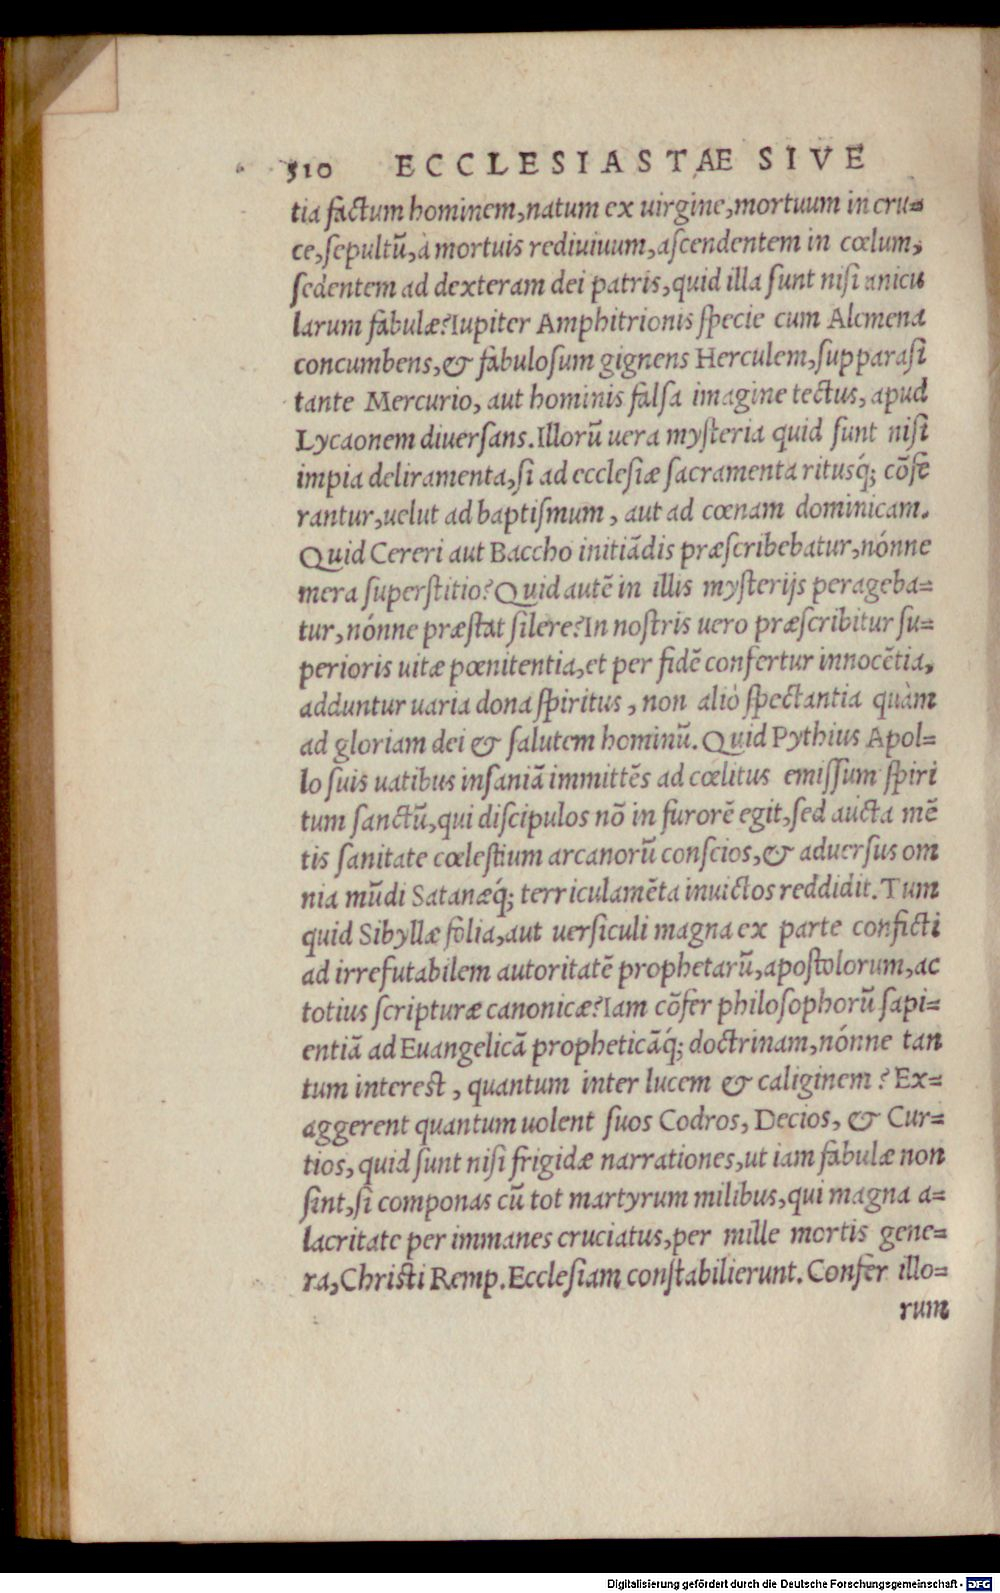 510 ECCLESIASTAE SIVE
tia factum hominem,natum ex uirgine,mortuum in cru=
ce,sepultũ,à mortuis rediuiuum,ascendentem in cœlum,
sedentem ad dexteram dei patris,quid illa sunt nisi anicu
larum fabulæ?Iupiter Amphitrionis specie cum Alcmena
concumbens,& fabulosum gignens Herculem,supparasi
tante Mercurio, aut hominis falsa imagine tectus, apud
Lycaonem diuersans.Illorũ uera mysteria quid sunt nisi
impia deliramenta,si ad ecclesiæ sacramenta ritusq́; cõfe
rantur,uelut ad baptismum, aut ad cœnam dominicam.
Quid Cereri aut Baccho initiãdis præscribebatur,nónne
mera superstitio?Quid autẽ in illis mysterijs perageba=
tur,nónne præstat silere?In nostris uero præscribitur su=
perioris uitæ pœnitentia,et per fidẽ confertur innocẽtia,
adduntur uaria dona spiritus, non aliò spectantia quàm
ad gloriam dei & salutem hominũ. Quid Pythius Apol=
lo suis uatibus insaniã immittẽs ad cœlitus emissum spiri
tum sanctũ,qui discipulos nõ in furorẽ egit,sed aucta mẽ
tis sanitate cœlestium arcanorũ conscios,& aduersus om
nia mũdi Satanæq́; terriculamẽta inuictos reddidit.Tum
quid Sibyllæ folia,aut uersiculi magna ex parte conficti
ad irrefutabilem autoritatẽ prophetarũ,apostolorum,ac
totius scripturæ canonicæ?Iam cõfer philosophorũ sapi=
entiã ad Euangelicã propheticãq́; doctrinam,nónne tan
tum interest, quantum inter lucem & caliginem? Ex=
aggerent quantum uolent suos Codros, Decios, & Cur=
tios, quid sunt nisi frigidæ narrationes,ut iam fabulæ non
sint,si componas cũ tot martyrum milibus,qui magna a=
lacritate per immanes cruciatus,per mille mortis gene=
ra,Christi Remp.Ecclesiam constabilierunt.Confer illo=
rum
Digitalisierung gefördert durch die Deutsche Forschungsgemeinschaft - DFG